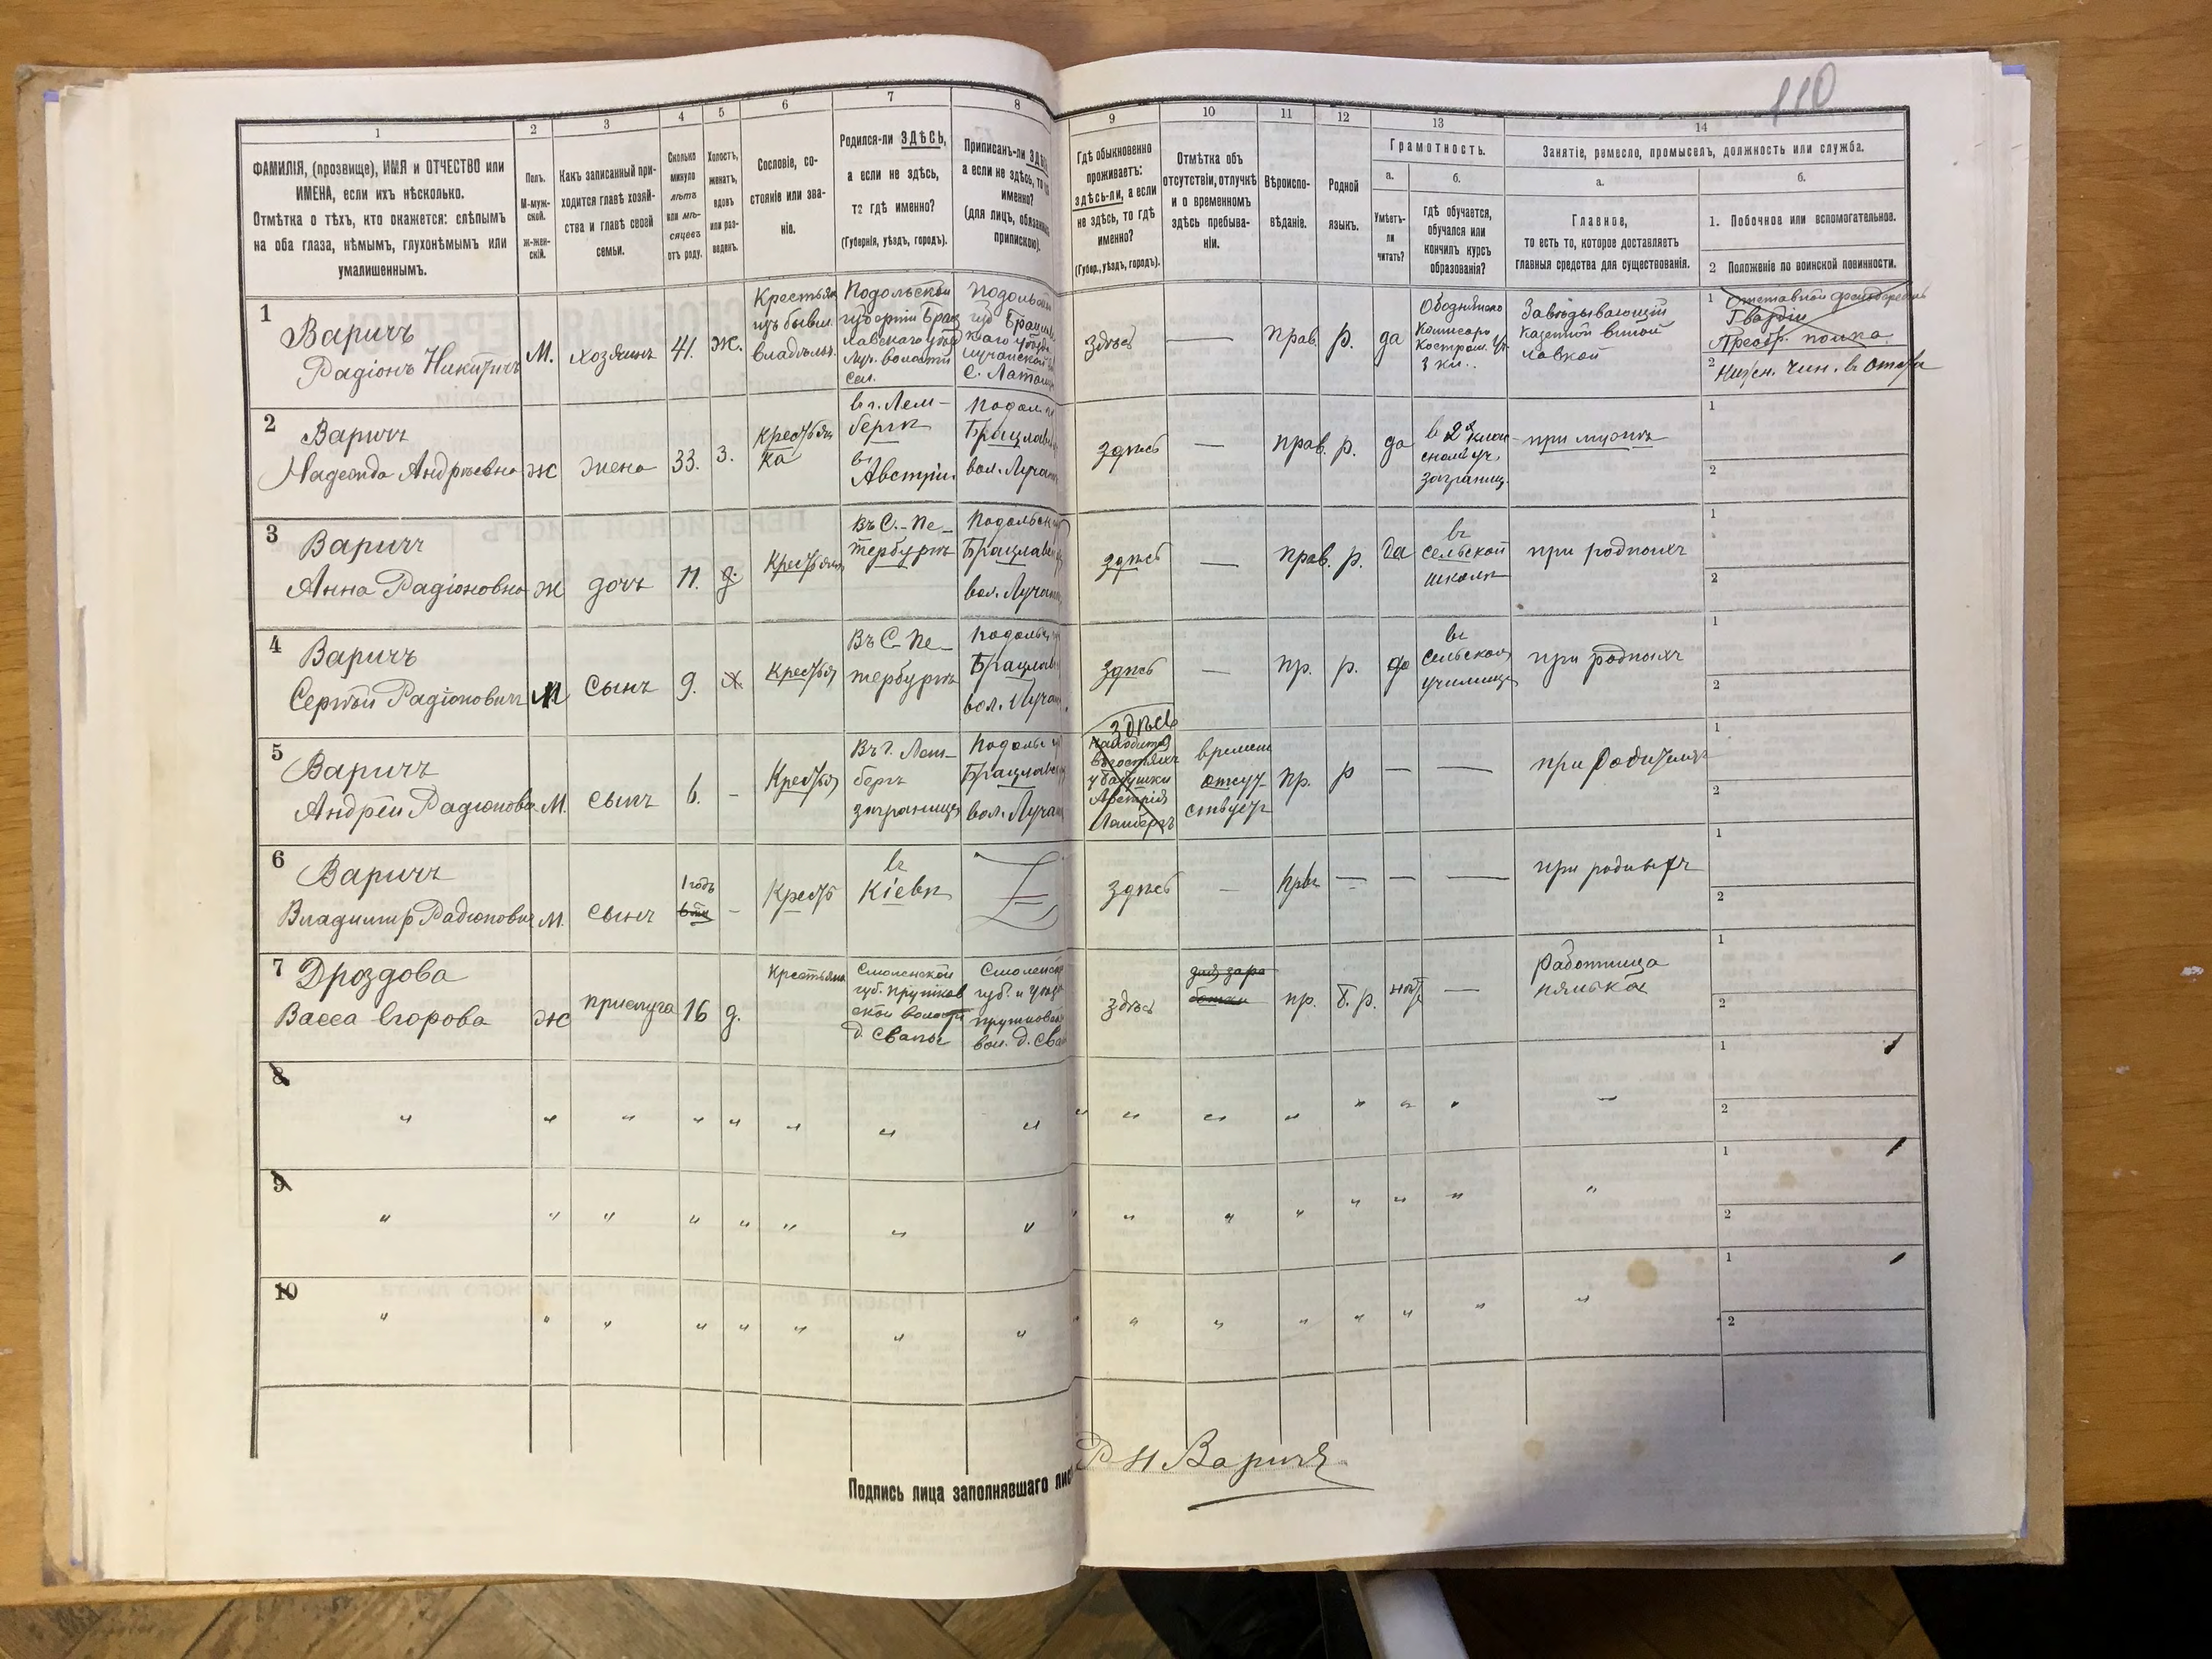 110
1
2
3
4
5
6
7
8
9
10
11
12
13
14
ФАМИЛІЯ, (прозвище), ИМЯ и ОТЧЕСТВО или
ИМЕНА, если ихъ нѣсколько.
Отмѣтка о тѣхъ, кто окажется: слѣпымъ
на оба глаза, нѣмымъ, глухонѣмымъ или
умалишеннымъ.
Полъ.
М-муж-
ской.
Ж-жен-
скій.
Какъ записанный при-
ходится главѣ хозяй-
ства и главѣ своей
семьи.
Сколько
минуло
лѣтъ
или мѣ-
сяцевъ
отъ роду.
Холостъ,
женатъ,
вдовъ
или раз-
веденъ.
Сословіе, со-
стояніе или зва-
ніе.
Родился-ли ЗДѢСЬ,
а если не здѣсь,
то гдѣ именно?
(Губернія, уѣздъ, городъ).
Приписанъ-ли
а если не здѣсь, то
именно?
(для лицъ,
припискою).
Гдѣ обыкновенно
проживаетъ:
здѣсь-ли, а если
не здѣсь, то гдѣ
именно?
(Губер., уѣздъ, городъ).
Отмѣтка объ
отсутствіи, отлучкѣ
и о временномъ
здѣсь пребыва-
ніи.
Вѣроиспо-
вѣданіе.
Родной
языкъ.
Грамотность.
а.
Умѣетъ-
ли
читать?
б.
Гдѣ обучается,
обучался или
кончилъ курсъ
образованія?
Занятіе, ремесло, промыселъ, должность или служба.
а.
Главное,
то есть то, которое доставляетъ
главныя средства для существованія.
б.
1. Побочное или вспомогательное.
2 Положеніе по воинской повинности.
1
Варичъ
Радіонъ Никитичъ
М.
хозяинъ
41.
ж.
Крестьян
изъ бывш.
владѣльч.
Подольской
губерніи Брац
лавскаго уѣзд
Луч. волости
сел.
Подольской
губ Брацлав
каго уѣзда
Лучанской
С.
здѣсь
—
прав.
р.
да
3 кл.
Завѣдывающій
казенной винной
лавкой
1 Отставной
Гвардіи
Преобр. полка.
2 Нижн. чин. в
2
Варичъ
Надежда Андреевна
ж
жена
33.
з.
Крестьян
ка
въ г. Лем-
бергѣ
въ
Австріи.
Подол.
Брацлавс
вол. Лучан
здѣсь
—
прав.
р.
да
в 2х клас
заграниц.
при мужѣ
1
2
3
Варичъ
Анна Радіоновна
ж
дочь
11.
д.
Крестьян
Въ С.-Пе-
тербургѣ
Подольск
Брацлавс
вол. Лучан
здѣсь
—
прав.
р.
да
въ
сельской
школѣ
при родныхъ
1
2
4
Варичъ
Сергѣй Радіоновичъ
М
сынъ
9.
х
Крестья
Въ С-Пе-
тербургѣ
Подольс
Брацлавс
вол. Лучан
здѣсь
—
пр.
р.
да
въ
сельском
училище
при родныхъ
1
2
5
Варичъ
Андрей Радіонови
М.
сынъ
6.
-
Крестья
Въ г. Лем-
бергѣ
заграницѣ
Подольс
Брацлавс
вол. Лучан
здѣсь
находится
въ гостяхъ
у бабушки
Австрія
Лембергъ
времен
отсут-
ствуетъ
пр.
р
—
—
при родителяхъ
1
2
6
Варичъ
Владимир Радіонович
М.
1 годъ
-
сынъ
Крест
въ
Кіевѣ
здѣсь
—
прв
—
—
—
при родныхъ
1
2
7
Дроздова
Васса Егорова
ж
прислуга
16
д.
Крестьяна
Смоленской
губ.
ской волости
Смоленск
губ. и уѣзда
здѣсь
пр.
р.
нѣт
—
Работница
нянька
1
2
8
1
2
9
1
2
10
1
2
Подпись лица заполнявшаго лис
Р Н Варичъ